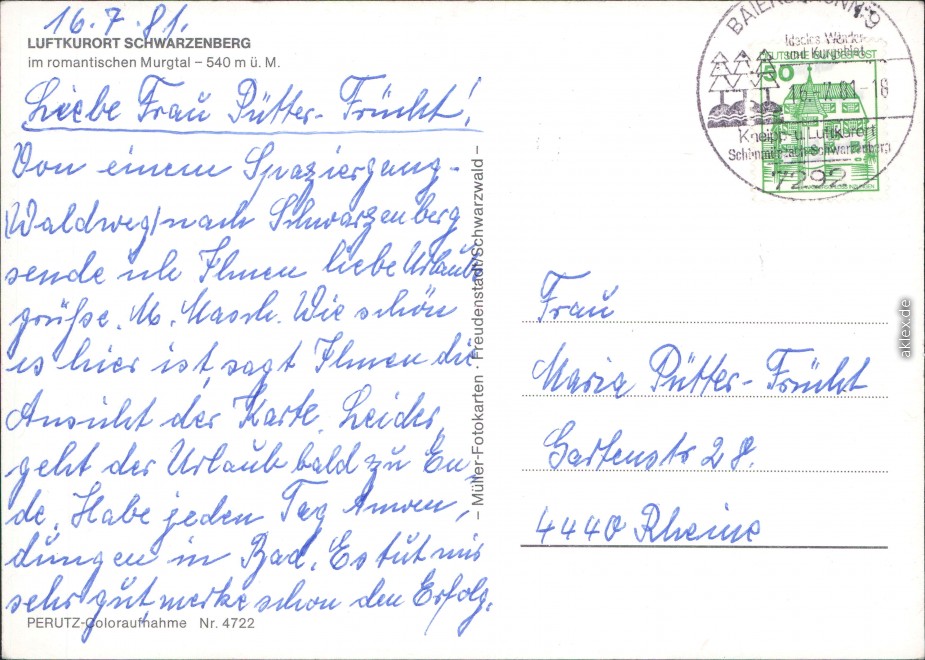 16.7.81.
LUFTKURORT SCHWARZENBERG
im romantischen Murgtal – 540 m ü. M.
Liebe Frau Pütter-Frücht!
Von einem Spaziergang-
(Waldweg) nach Schwarzenberg
sende ich Ihnen liebe Urlaubs
grüße. M. Masch. Wie schön
es hier ist, sagt Ihnen die
Ansicht der Karte. Leider,
geht der Urlaub bald zu En,
de. Habe jeden Tag Anwen,
dungen in Bad. Es tut mir
sehr gut, merke schon den Erfolg.
PERUTZ-Coloraufnahme Nr. 4722
– Müller-Fotokarten · Freudenstadt/Schwarzwald –
BAIERSBRONN 9
Ideales Wander-
und Kurgebiet
DEUTSCHE BUNDESPOST
50
16.-7.81-18
Kneipp- u. Luftkurort
Schönmünzach-Schwarzenberg
7292
Frau
Maria Pütter-Frücht
Gartenstr 28.
4440 Rheine
aklex.de